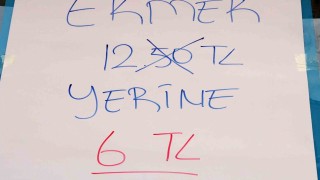 EKMEK
12 50 TL
YERİNE
6 TL